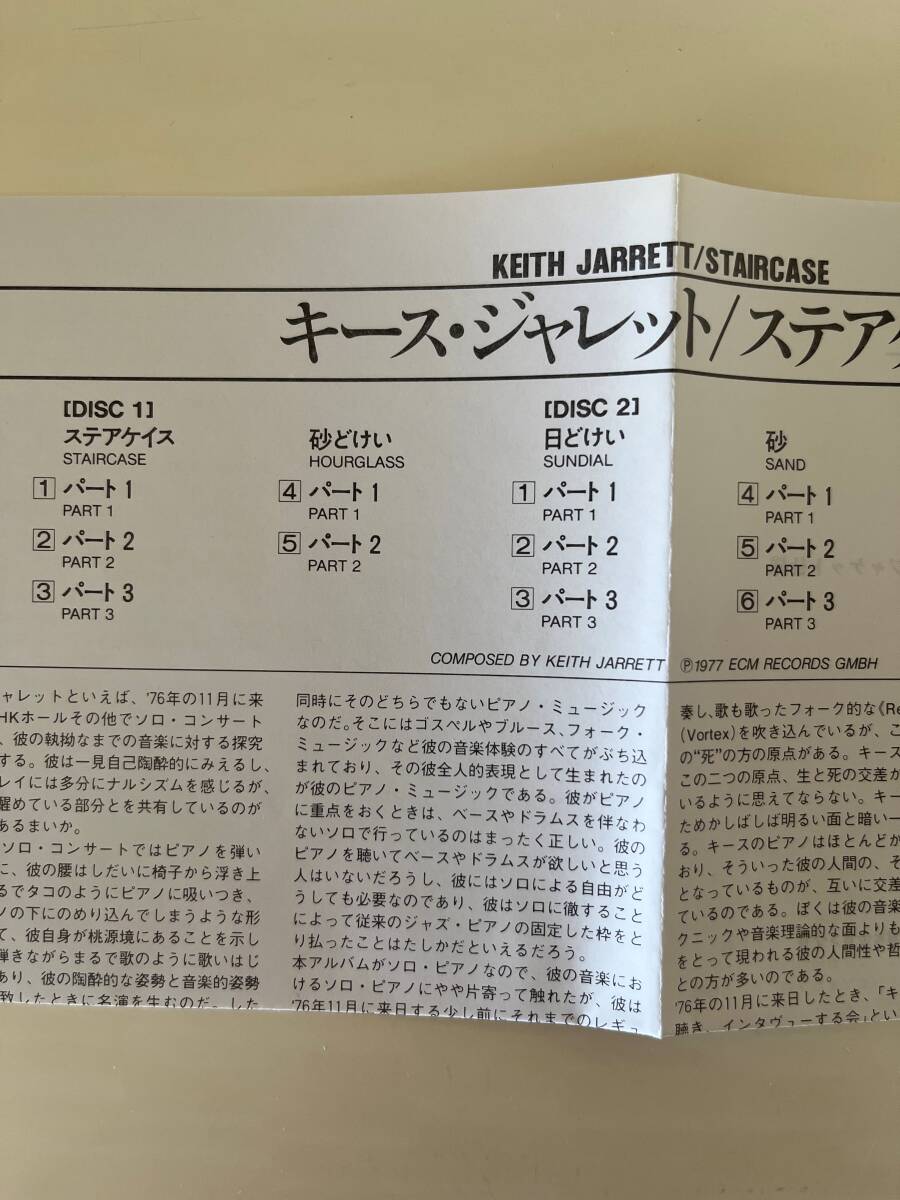 KEITH JARRETT/STAIRCASE
キース・ジャレット/ステア
[DISC 1]
ステアケイス
STAIRCASE
1 パート1
PART 1
2 パート2
PART 2
3 パート3
PART 3
砂どけい
HOURGLASS
4 パート1
PART 1
5 パート2
PART 2
[DISC 2]
日どけい
SUNDIAL
1 パート1
PART 1
2 パート2
PART 2
3 パート3
PART 3
砂
SAND
4 パート1
PART 1
5 パート2
PART 2
6 パート3
PART 3
COMPOSED BY KEITH JARRETT ℗1977 ECM RECORDS GMBH
ャレットといえば、'76年の11月に来
HKホールその他でソロ・コンサート
、彼の執拗なまでの音楽に対する探究
する。彼は一見自己陶酔的にみえるし、
レイには多分にナルシズムを感じるが、
醒めている部分とを共有しているのが
あるまいか。
ソロ・コンサートではピアノを弾い
に、彼の腰はしだいに椅子から浮き上
るでタコのようにピアノに吸いつき、
ノの下にのめり込んでしまうような形
て、彼自身が桃源境にあることを示し
弾きながらまるで歌のように歌いはじ
あり、彼の陶酔的な姿勢と音楽的姿勢
致したときに名演を生むのだ。した
同時にそのどちらでもないピアノ・ミュージック
なのだ。そこにはゴスペルやブルース、フォーク・
ミュージックなど彼の音楽体験のすべてがぶち込
まれており、その彼全人的表現として生まれたの
が彼のピアノ・ミュージックである。彼がピアノ
に重点をおくときは、ベースやドラムスを伴なわ
ないソロで行っているのはまったく正しい。彼の
ピアノを聴いてベースやドラムスが欲しいと思う
人はいないだろうし、彼にはソロによる自由がど
うしても必要なのであり、彼はソロに徹すること
によって従来のジャズ・ピアノの固定した枠をと
り払ったことはたしかだといえるだろう。
本アルバムがソロ・ピアノなので、彼の音楽にお
けるソロ・ピアノにやや片寄って触れたが、彼は
'76年11月に来日する少し前にそれまでのレギュ
奏し、歌も歌ったフォーク的な《Re
(Vortex)を吹き込んでいるが、こ
の"死"の方の原点がある。キース
この二つの原点、生と死の交差が
いるように思えてならない。キー
ためかしばしば明るい面と暗い一
る。キースのピアノはほとんどか
おり、そういった彼の人間の、そ
となっているものが、互いに交差
ているのである。ぼくは彼の音楽
クニックや音楽理論的な面よりも
をとって現われる彼の人間性や哲
との方が多いのである。
'76年の11月に来日したとき、「キ
聴き、インタヴューする会」とい